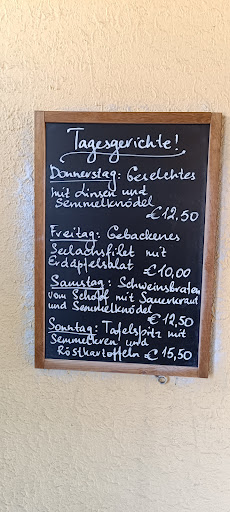 Tagesgerichte!
Donnerstag: Geselchtes
mit Linsen und
Semmelknödel
€ 12,50
Freitag: Gebackenes
Seelachsfilet mit
Erdäpfelsalat € 10,00
Samstag: Schweinsbraten
vom Schopf mit Sauerkraut
und Semmelknödel
€ 12,50
Sonntag: Tafelspitz mit
Semmelkren und
Röstkartoffeln € 15,50